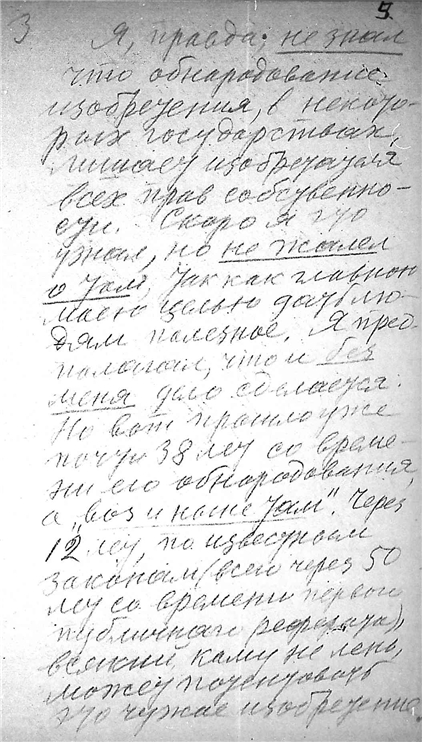 3
3.
Я, правда, не знал
что обнародование
изобретения, в некото-
рых государствах,
лишает изобретателя
всех прав собственно-
сти. Скоро я это
узнал, но не жалел
о том, так как главною
моею целью дать лю-
дям полезное. Я пред-
полагал, что и без
меня дело сделается.
Но вот прошло уже
почти 38 лет со време-
ни его обнародования,
а "воз и ныне там". Через
12 лет, по известным
законам (всего через 50
лет со времени первого
публичнаго реферата),
всякий, кому не лень,
может патентовать
это чужое изобретение.